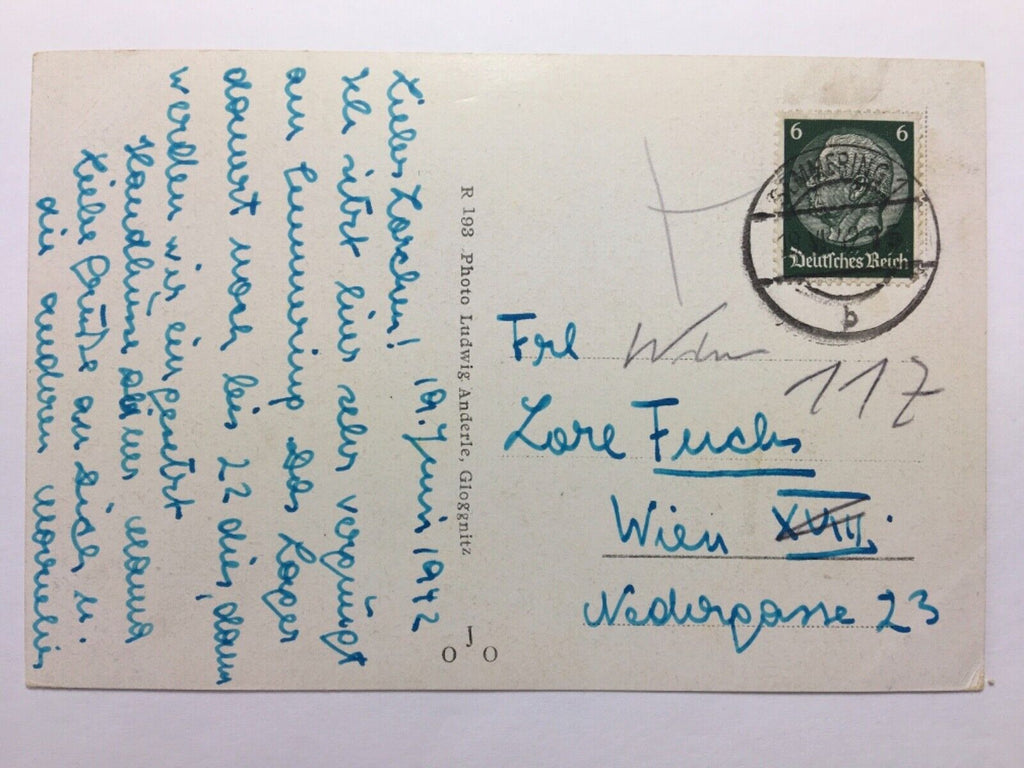 Liebes Lorchen! 19. Juni 1942
Ich sitze hier sehr vergnügt
am Semmering das Lager
dauert noch bis 22 dies, dann
werden wir eingesetzt
Handküsse an
Liebe Grüße an Dich u.
die anderen
R 193 Photo Ludwig Anderle, Gloggnitz
J
O O
6 6
Deutsches Reich
SEMMERING 1
b
Frl Wien
117
Lore Fuchs
Wien XVIII.
Nedergasse 23